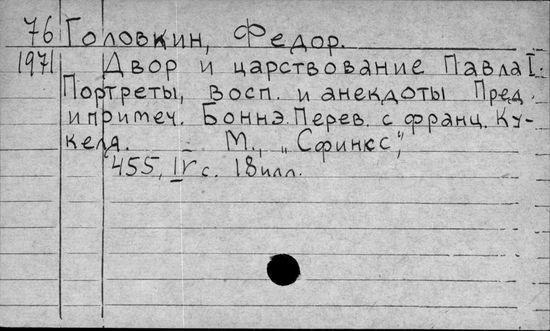 76 Головкин, Федор.
1971 Двор и царствование Павла I.
Портреты, восп. и анекдоты Пред.
и примеч. Боннэ. Перев. с франц. Ку-
келя. М., „Сфинкс",
455, IV с. 18 илл.